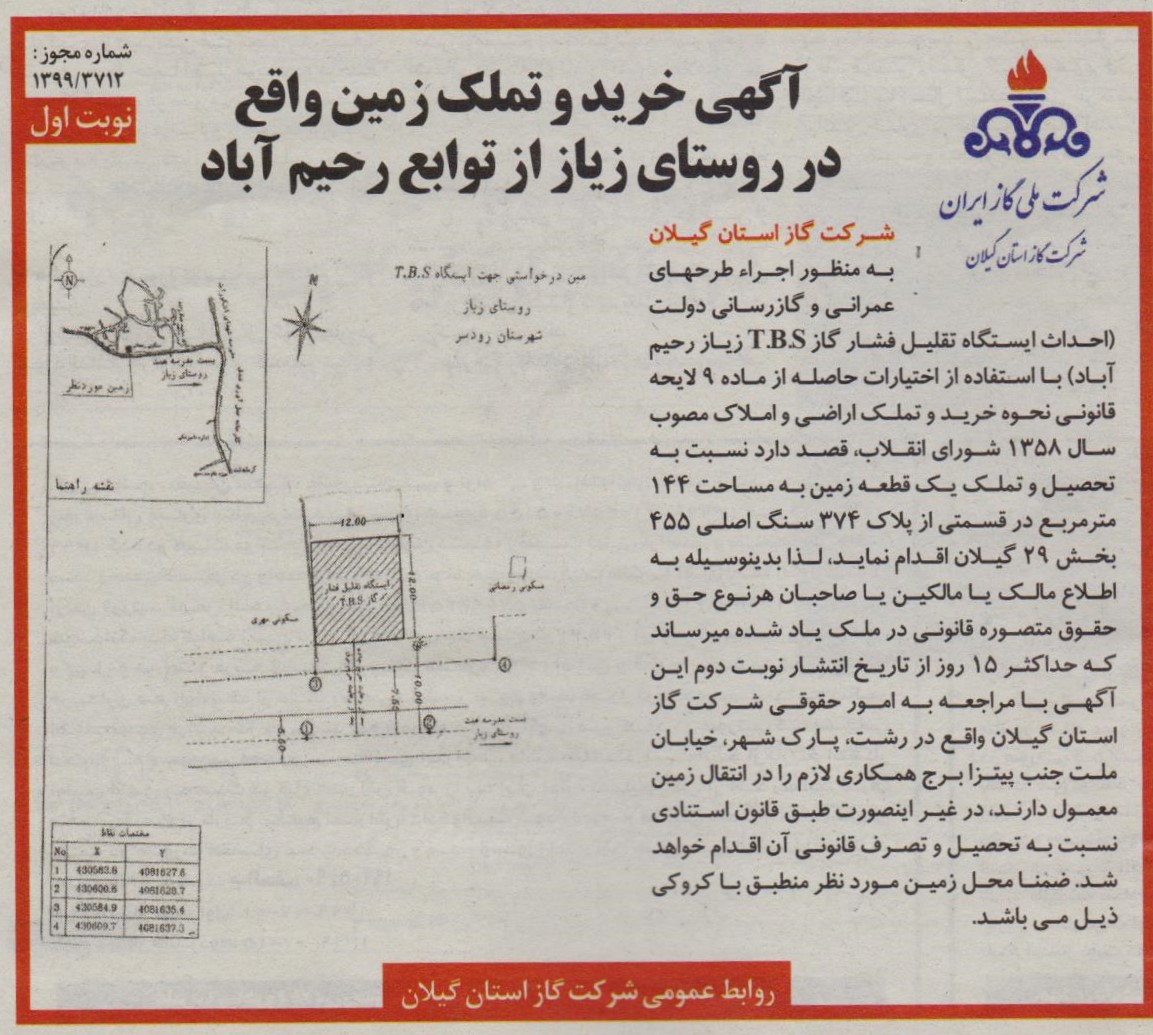 شماره مجوز:
۱۳۹۹/۳۷۱۲
نوبت اول
آگهی خرید و تملک زمین واقع
در روستای زیاز از توابع رحیم آباد
شرکت ملی گاز ایران
شرکت گاز استان گیلان
شرکت گاز استان گیلان
به منظور اجراء طرحهای
عمرانی و گازرسانی دولت
(احداث ایستگاه تقلیل فشار گاز T.B.S زیاز رحیم
آباد) با استفاده از اختیارات حاصله از ماده ۹ لایحه
قانونی نحوه خرید و تملک اراضی و املاک مصوب
سال ۱۳۵۸ شورای انقلاب، قصد دارد نسبت به
تحصیل و تملک یک قطعه زمین به مساحت ۱۴۴
مترمربع در قسمتی از پلاک ۳۷۴ سنگ اصلی ۴۵۵
بخش ۲۹ گیلان اقدام نماید، لذا بدینوسیله به
اطلاع مالک یا مالکین یا صاحبان هرنوع حق و
حقوق متصوره قانونی در ملک یاد شده میرساند
که حداکثر ۱۵ روز از تاریخ انتشار نوبت دوم این
آگهی با مراجعه به امور حقوقی شرکت گاز
استان گیلان واقع در رشت، پارک شهر، خیابان
ملت جنب پیتزا برج همکاری لازم را در انتقال زمین
معمول دارند، در غیر اینصورت طبق قانون استنادی
نسبت به تحصیل و تصرف قانونی آن اقدام خواهد
شد. ضمنا محل زمین مورد نظر منطبق با کروکی
ذیل می باشد.
مین درخواستی جهت ایستگاه T.B.S
روستای زیاز
شهرستان رودسر
N
N
بست مدرسه
روستای زیاز
زمین موردنظر
نقشه راهنما
12.00
12.00
ایستگاه تقلیل فشار
گاز T.B.S
مسکونی رمضانی
مسکونی مهری
10.00
7.50
6.50
1
1
2
4
بست مدرسه
روستای زیاز
مختصات نقاط
No X Y
1 430583.8 4081627.6
2 430600.6 4081628.7
3 430584.9 4081635.4
4 430609.7 4081637.3
روابط عمومی شرکت گاز استان گیلان